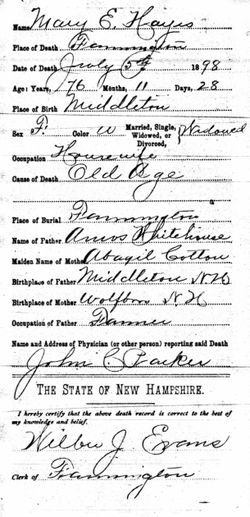 Name Mary E. Hayes
Place of Death Farmington
Date of Death July 5th 1898
Age: Years, 76 Months, 11 Days, 28
Place of Birth Middleton
Sex F. Color W Married, Single, Widowed, or Divorced, } Widowed
Occupation Housewife
Cause of Death Old Age
Place of Burial Farmington
Name of Father Amos Whitehouse
Maiden Name of Mother Abagil Cotton
Birthplace of Father Middleton N H
Birthplace of Mother Wolfboro N H
Occupation of Father Farmer
Name and Address of Physician (or other person) reporting said Death
John C Parker
THE STATE OF NEW HAMPSHIRE.
I hereby certify that the above death record is correct to the best of
my knowledge and belief.
Wilbur J. Evans
Clerk of Farmington